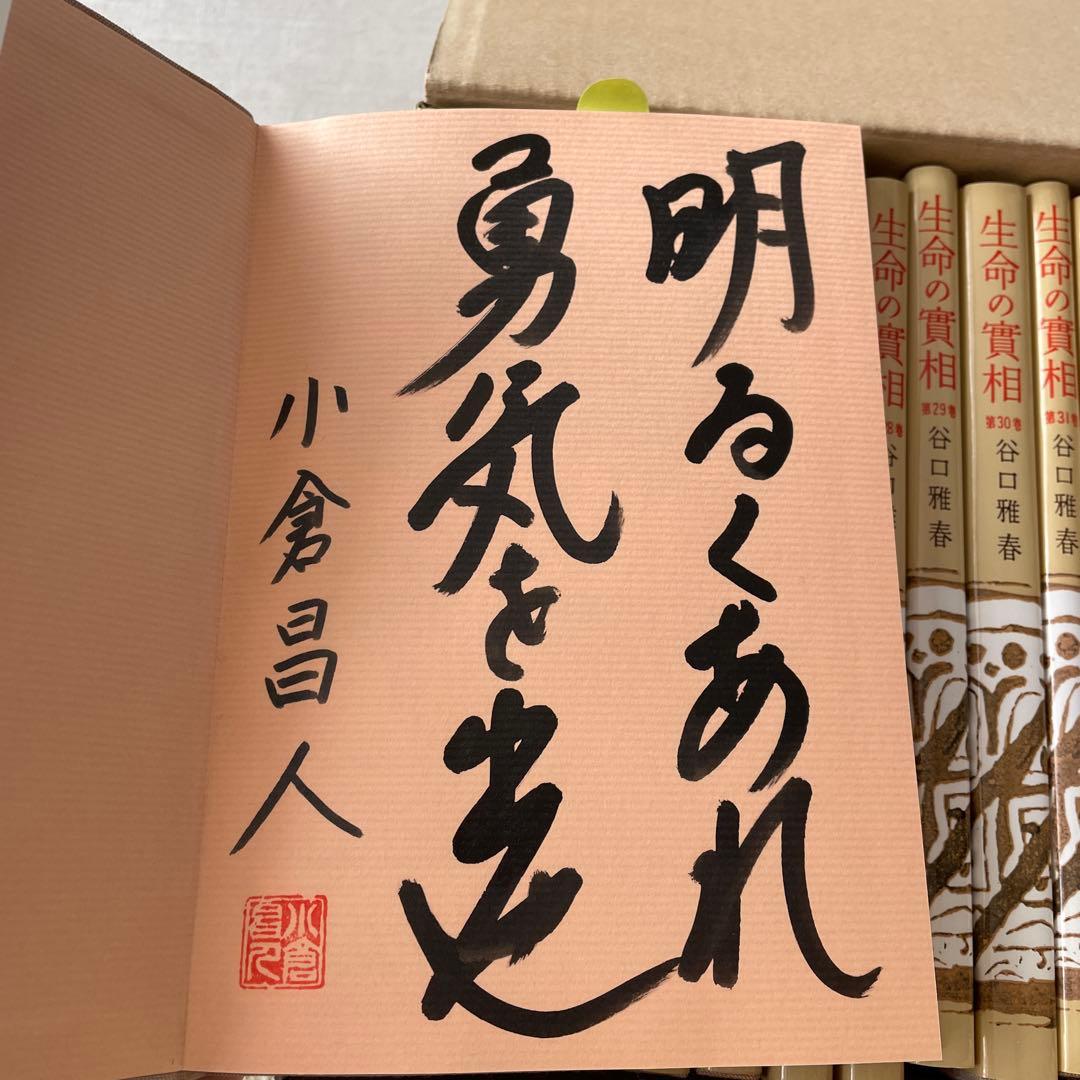 明るくあれ
勇気を出せ
小倉昌人
小倉
昌人
生命の實相
8巻
谷口雅
生命の實相
第29巻
谷口雅春
生命の實相
第30巻
谷口雅春
生命の實相
第31巻
谷口雅春